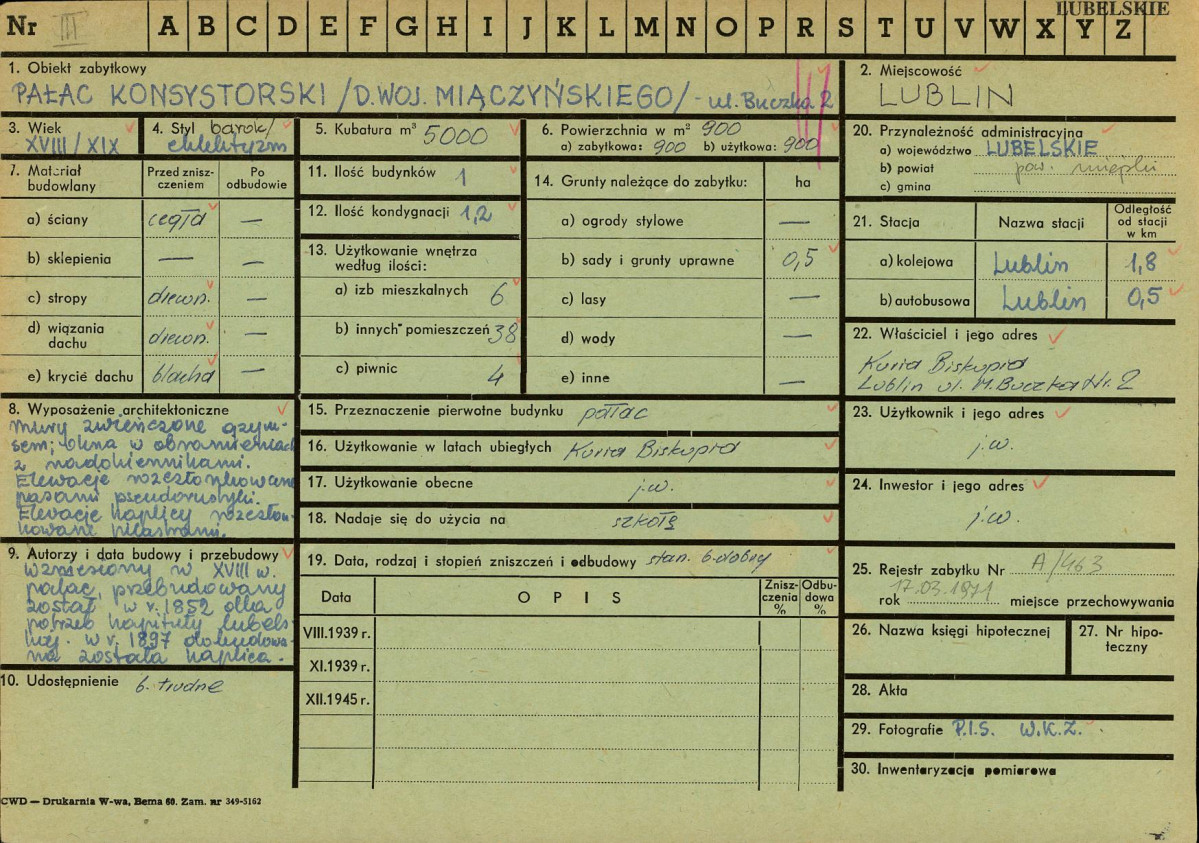 LUBELSKIE
Nr III A B C D E F G H I J K L M N O P R S T U V W X Y Z
1. Obiekt zabytkowy
PAŁAC KONSYSTORSKI /D. WOJ. MIĄCZYŃSKIEGO/ - ul. Buczka 2
2. Miejscowość
LUBLIN
3. Wiek
XVIII/XIX
4. Styl barok/
eklektyzm
5. Kubatura m³ 5000
6. Powierzchnia w m² 900
a) zabytkowa: 900 b) użytkowa: 900
7. Materiał
budowlany
Przed znisz-
czeniem
Po
odbudowie
a) ściany cegła —
b) sklepienia — —
c) stropy drewn. —
d) wiązania
dachu drewn. —
e) krycie dachu blacha —
8. Wyposażenie architektoniczne
Mury zwieńczone gzym-
sem; okna w obramieniach
z nadokiennikami.
Elewacje rozczłonkowane
pasami pseudorustyki.
Elewacje kaplicy rozczłon-
kowane pilastrami.
9. Autorzy i data budowy i przebudowy
Wzniesiony w XVIII w.
pałac, przebudowany
został w r. 1852 dla
potrzeb kapituły lubels-
kiej. w r. 1897 dobudowa-
na została kaplica.
10. Udostępnienie b. trudne
11. Ilość budynków 1
12. Ilość kondygnacji 1,2
13. Użytkowanie wnętrza
według ilości:
a) izb mieszkalnych 6
b) innych pomieszczeń 38
c) piwnic 4
14. Grunty należące do zabytku: ha
a) ogrody stylowe —
b) sady i grunty uprawne 0,5
c) lasy —
d) wody —
e) inne —
15. Przeznaczenie pierwotne budynku pałac
16. Użytkowanie w latach ubiegłych Kuria Biskupia
17. Użytkowanie obecne j.w.
18. Nadaje się do użycia na szkołę
19. Data, rodzaj i stopień zniszczeń i odbudowy stan b. dobry
Data OPIS Znisz-
czenia
% Odbu-
dowa
%
VIII.1939 r.
XI.1939 r.
XII.1945 r.
20. Przynależność administracyjna
a) województwo LUBELSKIE
b) powiat pow. miejski
c) gmina
21. Stacja Nazwa stacji Odległość
od stacji
w km
a) kolejowa Lublin 1,8
b) autobusowa Lublin 0,5
22. Właściciel i jego adres
Kuria Biskupia
Lublin ul. M. Buczka Nr. 2
23. Użytkownik i jego adres
j.w.
24. Inwestor i jego adres
j.w.
25. Rejestr zabytku Nr A/463
rok 17.03.1971 miejsce przechowywania
26. Nazwa księgi hipotecznej
27. Nr hipo-
teczny
28. Akta
29. Fotografie P.I.S. W.K.Z.
30. Inwentaryzacja pomiarowa
CWD — Drukarnia W-wa, Bema 60. Zam. nr 349-5162